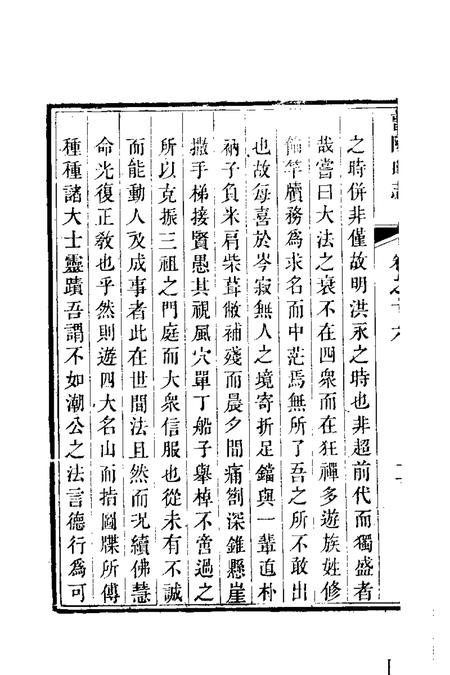 之時併非僅故明洪永之時也非超前代而獨盛者
哉嘗曰大法之衰不在四衆而在狂禪多遊族姓修
飾竿牘務爲求名而中茫焉無所了吾之所不敢出
也故每喜於岑寂無人之境寄折足鐺與一輩直朴
衲子負米肩柴葺敝補殘而晨夕間痛劄深錐懸崖
撒手梯接賢愚其視風穴單丁船子舉棹不啻過之
所以克振三祖之門庭而大衆信服也從未有不誠
而能動人及成事者此在世間法且然而況續佛慧
命光復正教也乎然則遊四大名山而掿圖牒所傳
種種諸大士靈蹟吾謂不如潮公之法言德行爲可